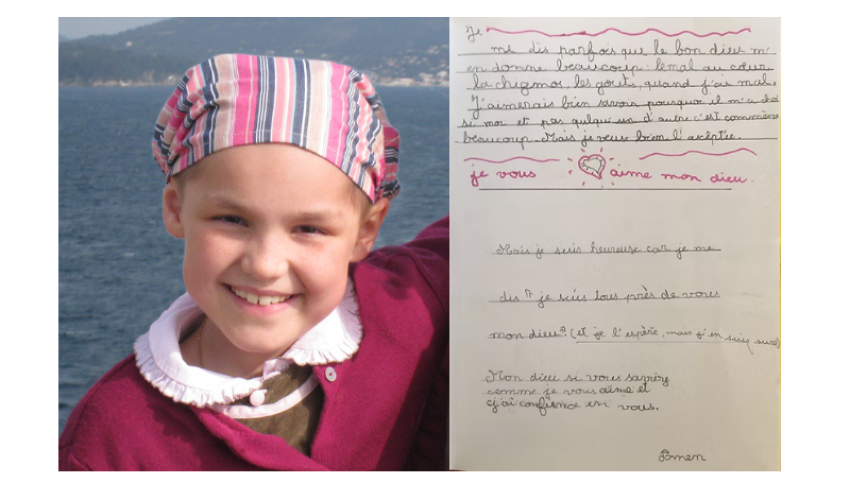 Je
me dis parfois que le bon dieu m'
en donne beaucoup : le mal au cœur
la chizmos, les gouts, quand j'ai mal.
J'aimerais bien savoir pourquoi il m'a choi
si moi et pas quelqu'un d'autre c'est comme
beaucoup. Mais je veux bien l'acêptée.
je vous aime mon dieu.
Mais je suis heureuse car je me
dis je suis tous près de vous
mon dieu. (et je l'éspère, mais j'en suis sure)
Mon dieu si vous saviez
comme je vous aime et
j'ai confience en vous.
Amen